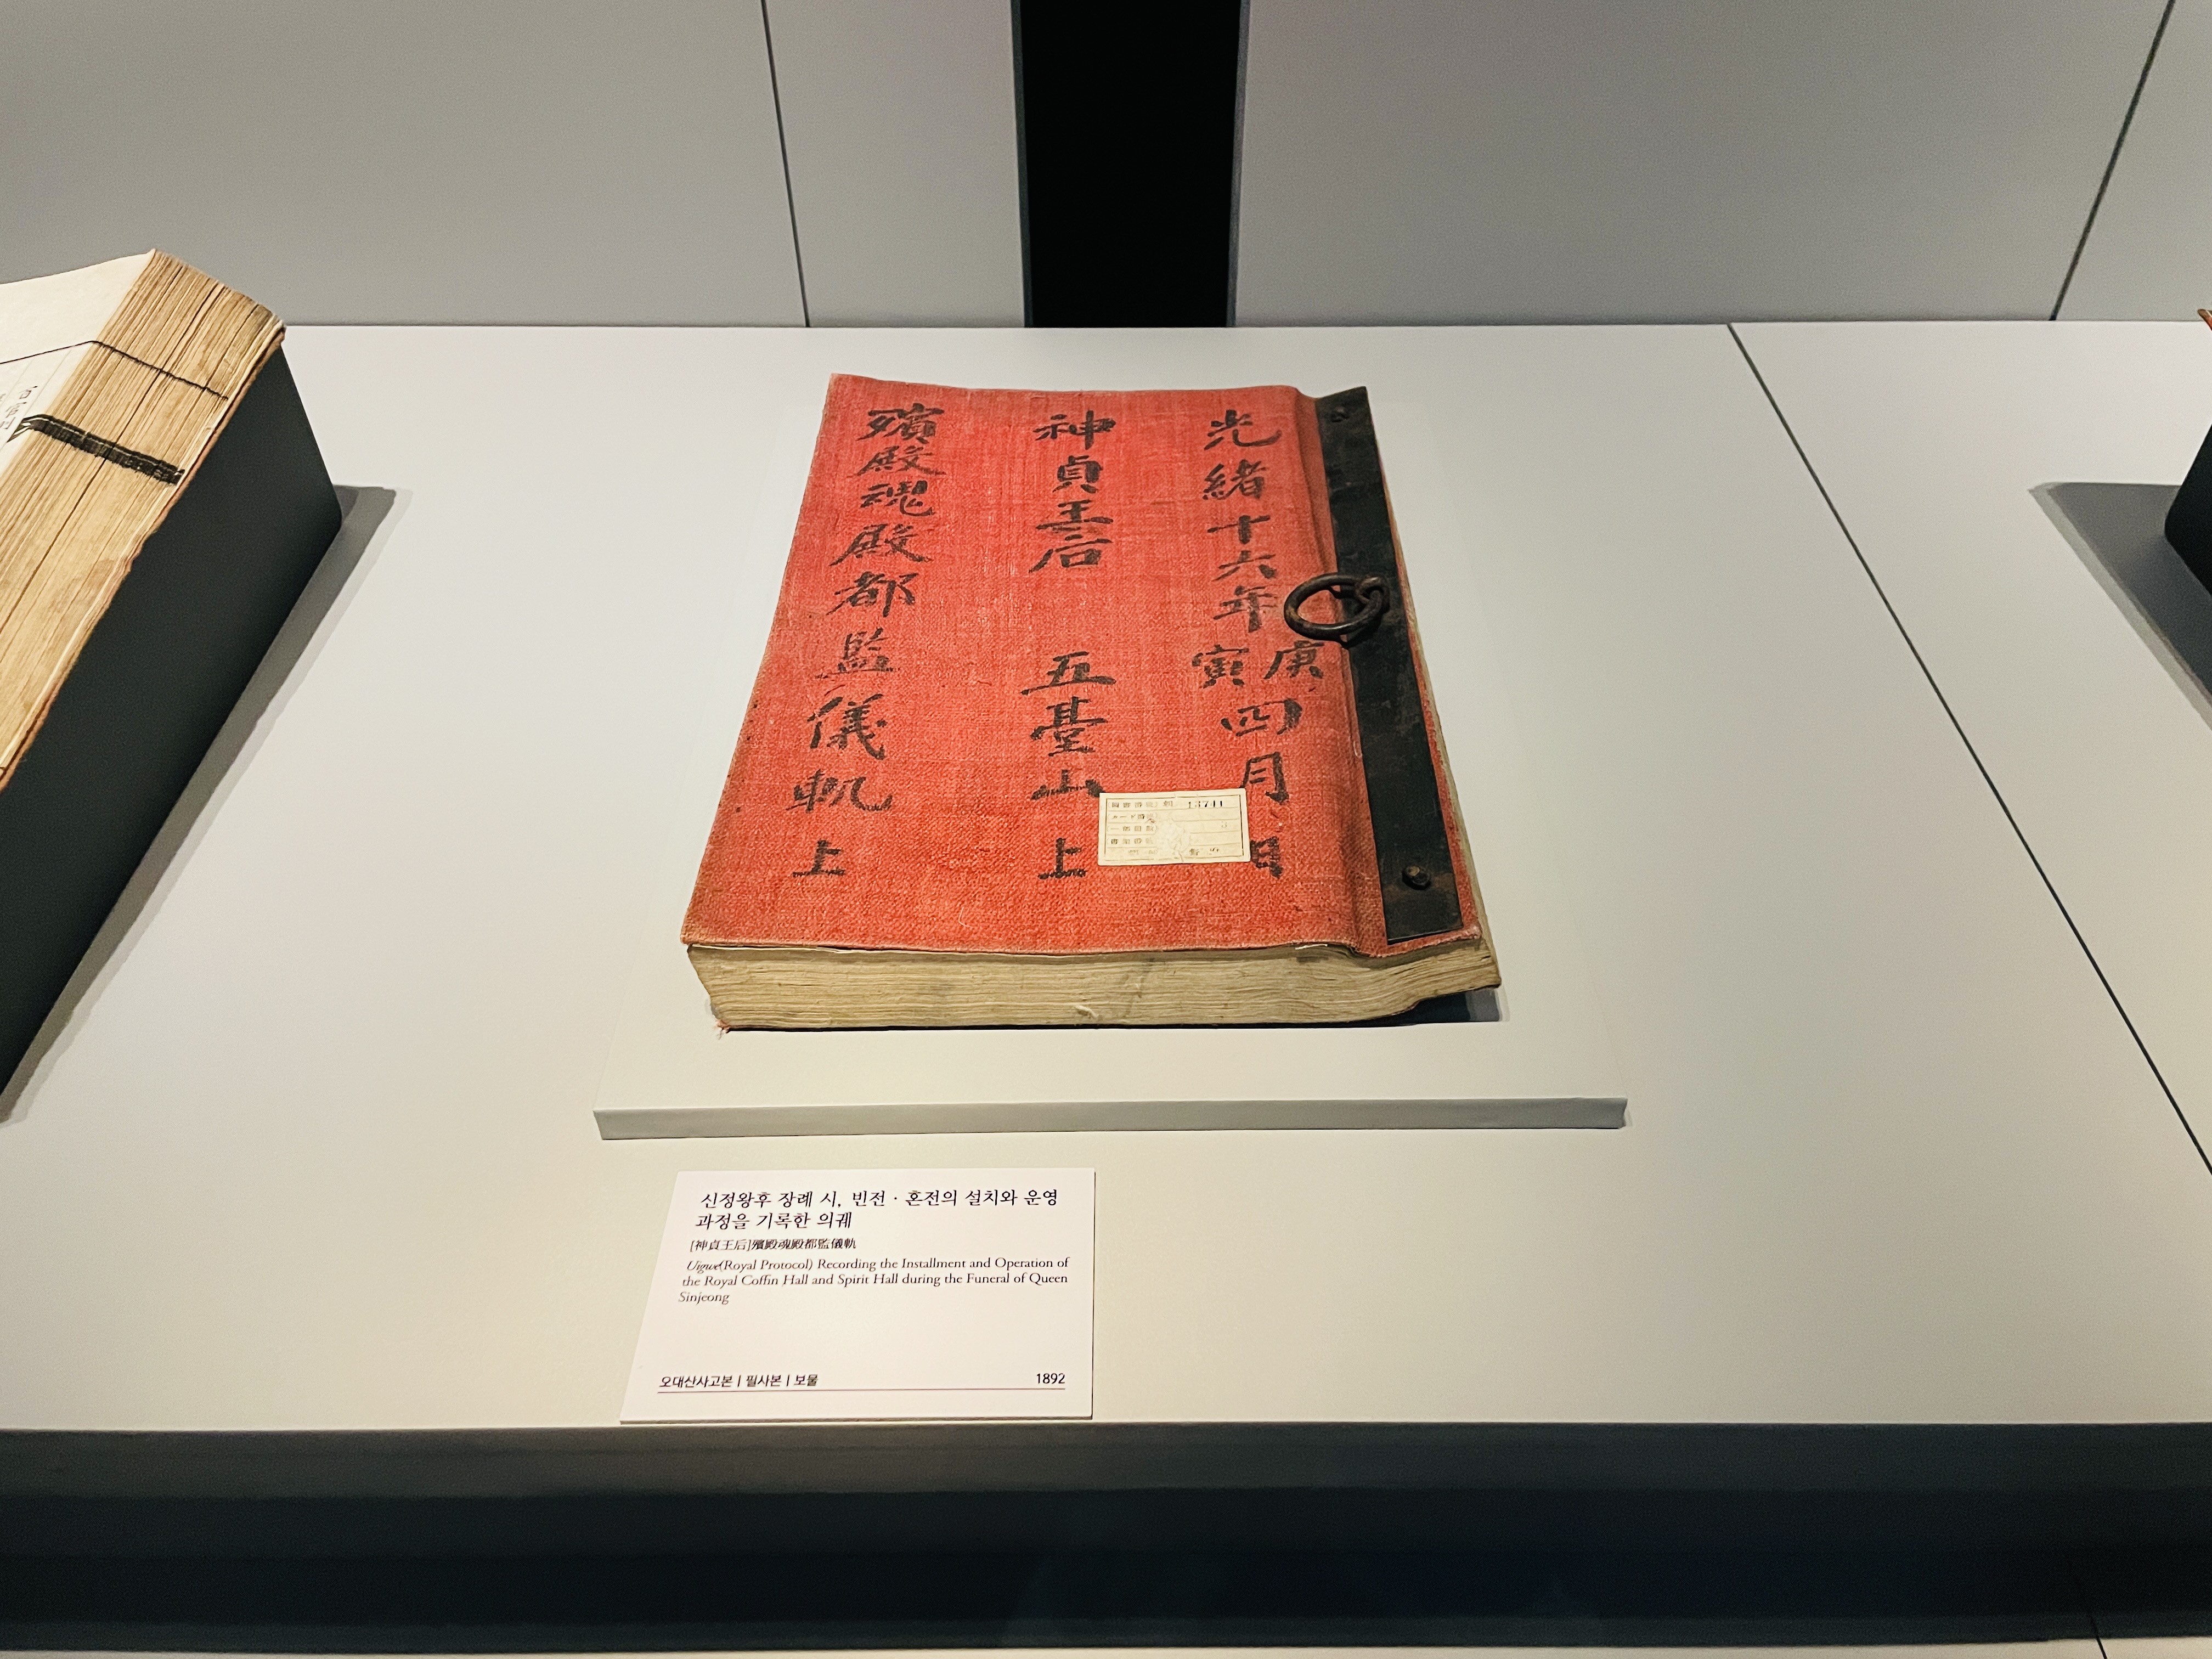 光緖十六年庚寅四月 日
神貞王后 五臺山 上
殯殿魂殿都監儀軌 上
13741
신정왕후 장례 시, 빈전 · 혼전의 설치와 운영
과정을 기록한 의궤
[神貞王后]殯殿魂殿都監儀軌
Uigwe(Royal Protocol) Recording the Installment and Operation of
the Royal Coffin Hall and Spirit Hall during the Funeral of Queen
Sinjeong
오대산사고본 | 필사본 | 보물 1892